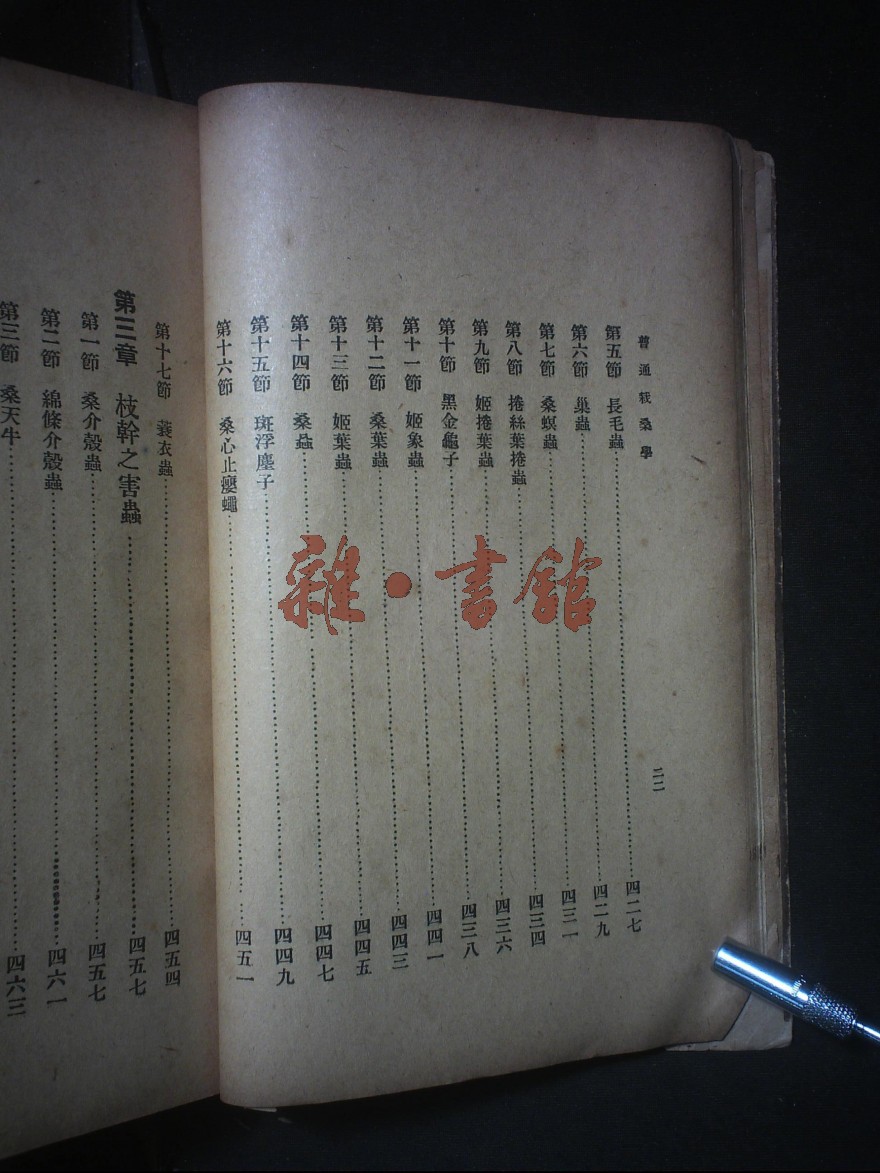 普通栽桑學
二二
第五節 長毛蟲……四二七
第六節 巢蟲……四二九
第七節 桑螟蟲……四三一
第八節 捲絲葉捲蟲……四三四
第九節 姬捲葉蟲……四三六
第十節 黑金龜子……四三八
第十一節 姬象蟲……四四一
第十二節 桑葉蟲……四四三
第十三節 姬葉蟲……四四五
第十四節 桑蝨……四四七
第十五節 斑浮塵子……四四九
第十六節 桑心止癭蠅……四五一
第十七節 蓑衣蟲……四五四
第三章 枝幹之害蟲……四五七
第一節 桑介殼蟲……四五七
第二節 綿條介殼蟲……四六一
第三節 桑天牛……四六三
雜·書館